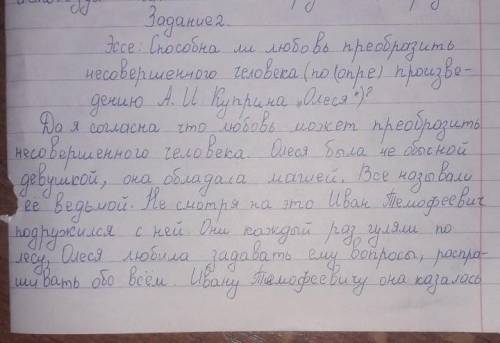 Задание2.
Эссе: Способна ли любовь преобразить
несовершенного человека (по (опре) произве-
дению А. И Куприна „Олеся")?
Да я согласна что любовь может преобразить
несовершенного человека. Олеся была не обысной
девушкой, она обладала магией. Все называли
ее ведьмой. Не смотря на это Иван Темофеевич
подружился с ней. Они каждый раз гуляли по
лесу, Олеся любила задавать ему вопросы, распра-
шивать обо всём. Ивану Темофеевичу она казалась